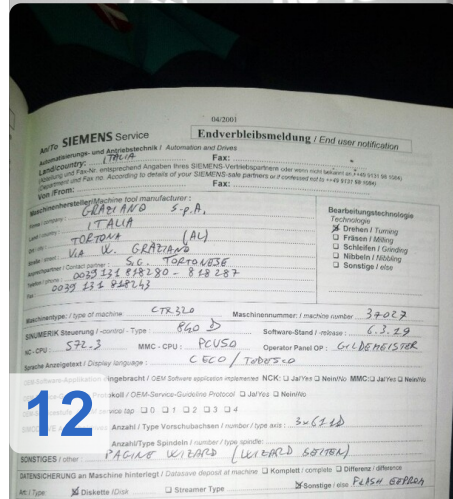 04/2001
An/To SIEMENS Service
Endverbleibsmeldung / End user notification
Automatisierungs- und Antriebstechnik / Automation and Drives
Land/country: ITALIA Fax:
Von /From: Fax:
Maschinenhersteller/Machine tool manufacturer :
GRAZIANO S.p.A.
ITALIA
TORTONA (AL)
VIA W. GRAZIANO
S.G. TORTONESE
Telefon / phone : 0039 131 818280 - 818287
Fax 0039 131 818243
Bearbeitungstechnologie
Technologie
Drehen / Turning
Fräsen / Milling
Schleifen / Grinding
Nibbeln / Nibbling
Sonstige / else
Maschinentype: / type of machine CTX320 Maschinennummer: / machine number 37027
SINUMERIK Steuerung /-control - Type : 840 D Software-Stand / -release : 6.3.19
NC - CPU : 572.3 MMC - CPU : PCU50 Operator Panel OP : GILDEMEISTER
Sprache Anzeigetext / Display language : CECO / TEDESCO
OEM Software application implemented NCK: Ja/Yes Nein/No MMC: Ja/Yes Nein/No
/ OEM-Service-Guideline Protocol Ja/Yes Nein/No
service tap 0 1 2 3 4
Anzahl / Type Vorschubachsen / number / type axis : 3x611D
Anzahl/Type Spindeln / number / type spindle:
SONSTIGES / other : PAGINE WIZARD (WIZARD SEITEN)
DATENSICHERUNG an Maschine hinterlegt / Datasave deposit at machine Komplett / complete Differenz / difference
Art / Type: Diskette /Disk Streamer Type Sonstige / else FLASH EEPROM
12